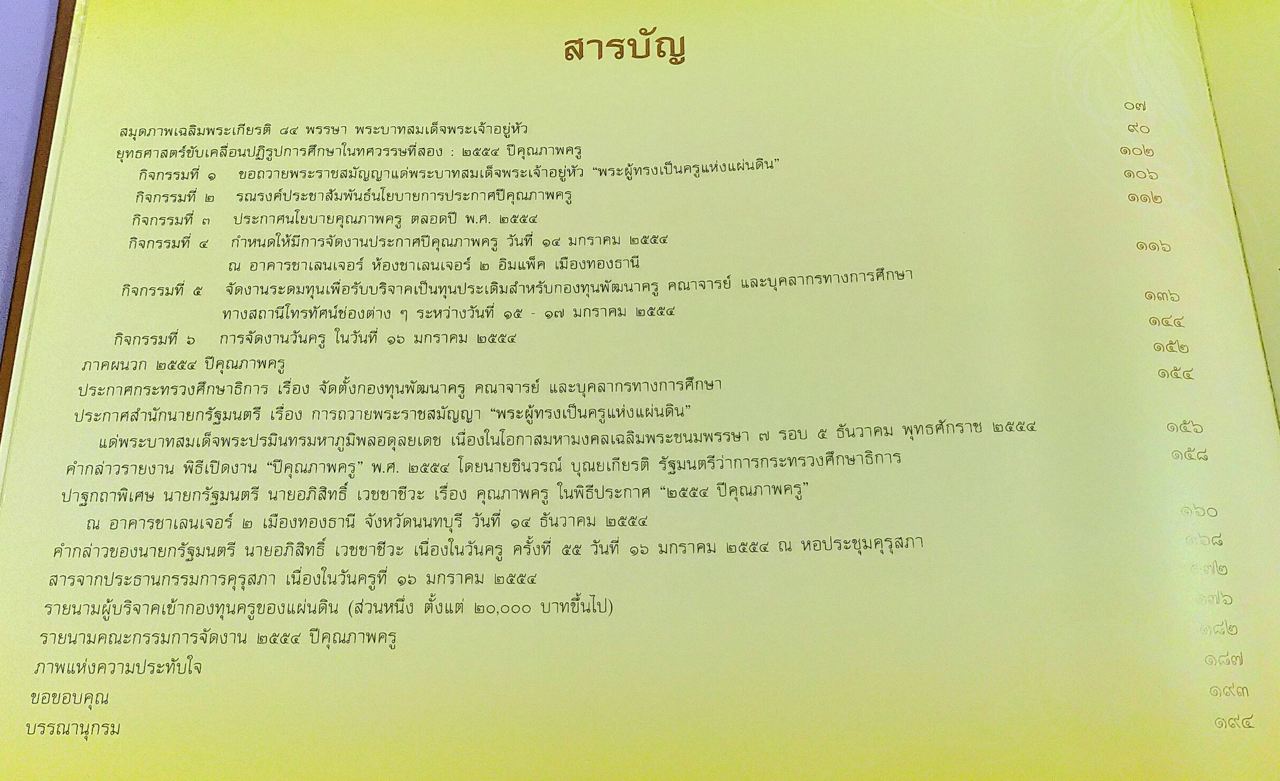 สารบัญ
สมุดภาพเฉลิมพระเกียรติ ๘๔ พรรษา พระบาทสมเด็จพระเจ้าอยู่หัว ๐๗
ยุทธศาสตร์ขับเคลื่อนปฏิรูปการศึกษาในทศวรรษที่สอง : ๒๕๕๔ ปีคุณภาพครู ๙๐
กิจกรรมที่ ๑ ขอถวายพระราชสมัญญาแด่พระบาทสมเด็จพระเจ้าอยู่หัว “พระผู้ทรงเป็นครูแห่งแผ่นดิน” ๑๐๒
กิจกรรมที่ ๒ รณรงค์ประชาสัมพันธ์นโยบายการประกาศปีคุณภาพครู ๑๐๖
กิจกรรมที่ ๓ ประกาศนโยบายคุณภาพครู ตลอดปี พ.ศ. ๒๕๕๔ ๑๑๒
กิจกรรมที่ ๔ กำหนดให้มีการจัดงานประกาศปีคุณภาพครู วันที่ ๑๔ มกราคม ๒๕๕๔
ณ อาคารชาเลนเจอร์ ห้องชาเลนเจอร์ ๒ อิมแพ็ค เมืองทองธานี ๑๑๖
กิจกรรมที่ ๕ จัดงานระดมทุนเพื่อรับบริจาคเป็นทุนประเดิมสำหรับกองทุนพัฒนาครู คณาจารย์ และบุคลากรทางการศึกษา
ทางสถานีโทรทัศน์ช่องต่าง ๆ ระหว่างวันที่ ๑๕ - ๑๗ มกราคม ๒๕๕๔ ๑๓๖
กิจกรรมที่ ๖ การจัดงานวันครู ในวันที่ ๑๖ มกราคม ๒๕๕๔ ๑๔๔
ภาคผนวก ๒๕๕๔ ปีคุณภาพครู ๑๕๒
ประกาศกระทรวงศึกษาธิการ เรื่อง จัดตั้งกองทุนพัฒนาครู คณาจารย์ และบุคลากรทางการศึกษา ๑๕๔
ประกาศสำนักนายกรัฐมนตรี เรื่อง การถวายพระราชสมัญญา “พระผู้ทรงเป็นครูแห่งแผ่นดิน”
แด่พระบาทสมเด็จพระปรมินทรมหาภูมิพลอดุลยเดช เนื่องในโอกาสมหามงคลเฉลิมพระชนมพรรษา ๗ รอบ ๕ ธันวาคม พุทธศักราช ๒๕๕๔ ๑๕๖
คำกล่าวรายงาน พิธีเปิดงาน “ปีคุณภาพครู” พ.ศ. ๒๕๕๔ โดยนายชินวรณ์ บุณยเกียรติ รัฐมนตรีว่าการกระทรวงศึกษาธิการ ๑๕๘
ปาฐกถาพิเศษ นายกรัฐมนตรี นายอภิสิทธิ์ เวชชาชีวะ เรื่อง คุณภาพครู ในพิธีประกาศ “๒๕๕๔ ปีคุณภาพครู”
ณ อาคารชาเลนเจอร์ ๒ เมืองทองธานี จังหวัดนนทบุรี วันที่ ๑๔ ธันวาคม ๒๕๕๔ ๑๖๐
คำกล่าวของนายกรัฐมนตรี นายอภิสิทธิ์ เวชชาชีวะ เนื่องในวันครู ครั้งที่ ๕๕ วันที่ ๑๖ มกราคม ๒๕๕๔ ณ หอประชุมคุรุสภา ๑๖๘
สารจากประธานกรรมการคุรุสภา เนื่องในวันครูที่ ๑๖ มกราคม ๒๕๕๔ ๑๗๒
รายนามผู้บริจาคเข้ากองทุนครูของแผ่นดิน (ส่วนหนึ่ง ตั้งแต่ ๒๐,๐๐๐ บาทขึ้นไป) ๑๗๖
รายนามคณะกรรมการจัดงาน ๒๕๕๔ ปีคุณภาพครู ๑๘๒
ภาพแห่งความประทับใจ ๑๘๗
ขอขอบคุณ ๑๙๓
บรรณานุกรม ๑๙๔